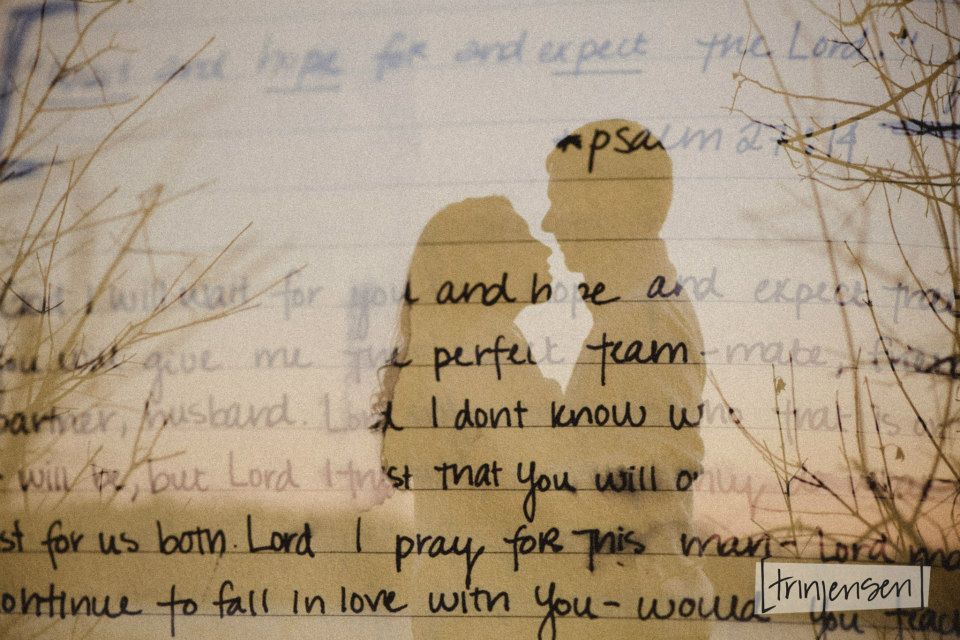 wait and hope for and expect the Lord."
psalm 27:14
I will wait for you and hope and expect that
you will give me the perfect team-mate, friend
partner, husband. Lord I dont know who that is or
will be, but Lord I trust that you will only
st for us both. Lord I pray for this man- Lord ma
ontinue to fall in love with you- would you teac
trinjensen